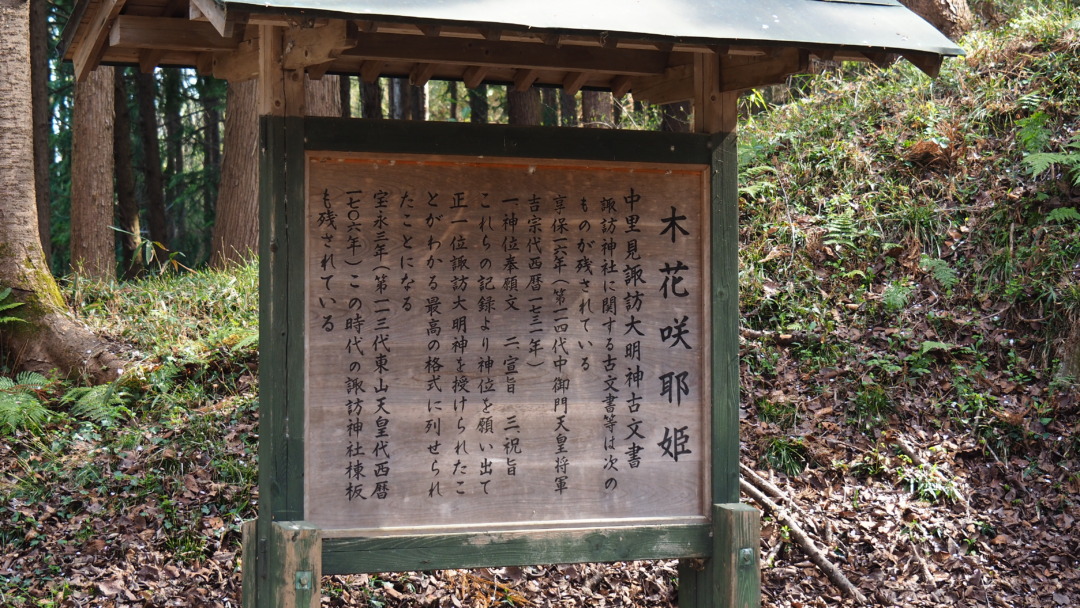 木花咲耶姫
中里見諏訪大明神古文書
諏訪神社に関する古文書等は次の
ものが残されている
享保一六年(第一一四代中御門天皇将軍
吉宗代西暦一七三一年)
一神位奉願文 二宣旨 三祝旨
これらの記録より神位を願い出て
正一位諏訪大明神を授けられたこ
とがわかる最高の格式に列せられ
たことになる
宝永三年(第一一三代東山天皇代西暦
一七〇六年)この時代の諏訪神社棟板
も残されている